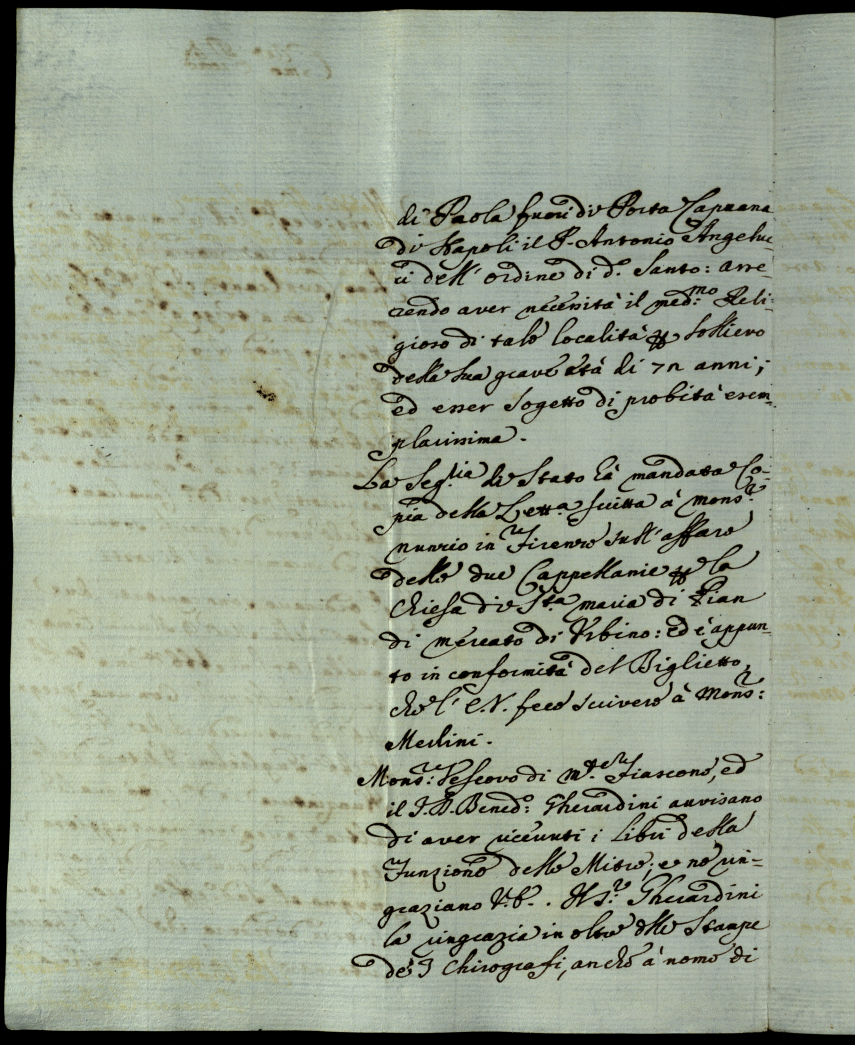 di Paola fuori di Porta Capuana
di Napoli il P. Antonio Angeluc-
ci dell' ordine di d.º Santo: asse-
rendo aver necessità il med.mo Reli-
gioso di tale località per sollievo
della sua grave età di 72 anni;
ed esser sogetto di probità esem-
plarissima.
La Seg.ria di Stato hà mandata Co-
pia della Lett.a scritta à Mons.r
Nunzio in Firenze sull' affare
delle due Cappellanie per la
Chiesa di S.ta Maria di Pian
di mercato di Urbino: ed è appun-
to in conformità del Biglietto,
che l' E.V. fece scrivere à Mons.r:
Merlini.
Mons.r: Vescovo di M.te Fiascone, ed
il P. Bened.º: Gherardini avvisano
di aver ricevuti i Libri della
Funzione delle Mitre; e ne rin-
graziano V.E. Il P.re Gherardini
la ringrazia in oltre delle Stampe
de' 3 Chirografi, anche à nome di